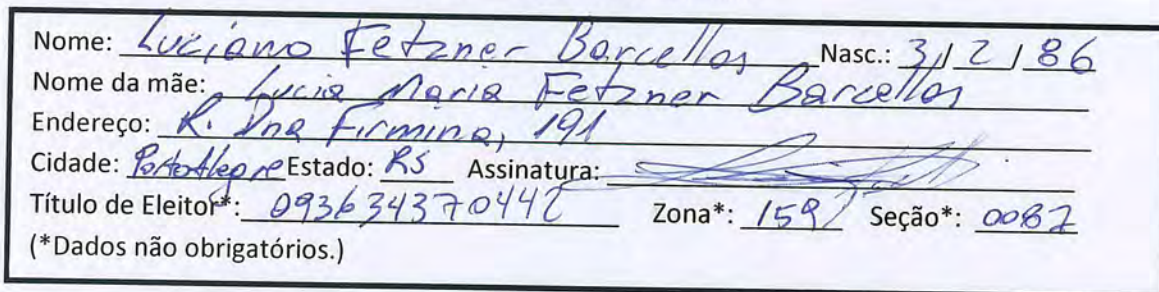 Nome: Luciano Fetzner Barcellos Nasc.: 3/2/86
Nome da mãe: Lucia Maria Fetzner Barcellos
Endereço: R. Dna Firmina, 191
Cidade: Porto Alegre Estado: RS Assinatura:
Título de Eleitor*: 093634370442 Zona*: 159 Seção*: 0087
(*Dados não obrigatórios.)